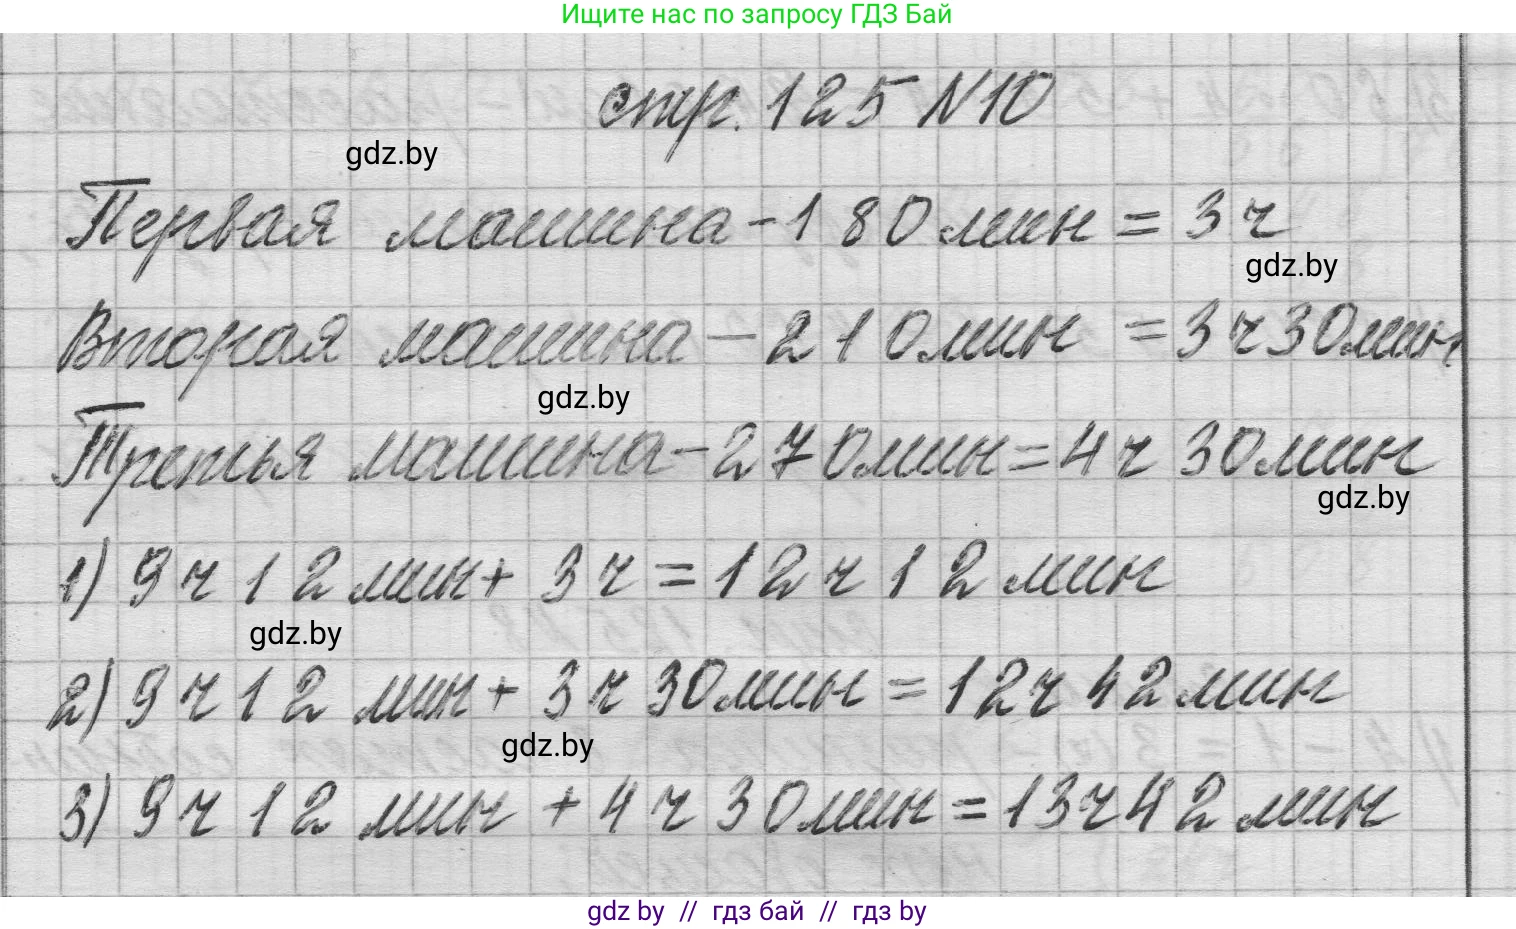 Ищите нас по запросу ГДЗ Бай
стр. 125 N10
gdz.by
Первая машина - 180 мин = 3 ч
gdz.by
Вторая машина - 210 мин = 3 ч 30 мин
gdz.by
Третья машина - 270 мин = 4 ч 30 мин
gdz.by
1) 9 ч 12 мин + 3 ч = 12 ч 12 мин
gdz.by
2) 9 ч 12 мин + 3 ч 30 мин = 12 ч 42 мин
gdz.by
3) 9 ч 12 мин + 4 ч 30 мин = 13 ч 42 мин
gdz by // гдз бай // гдз by